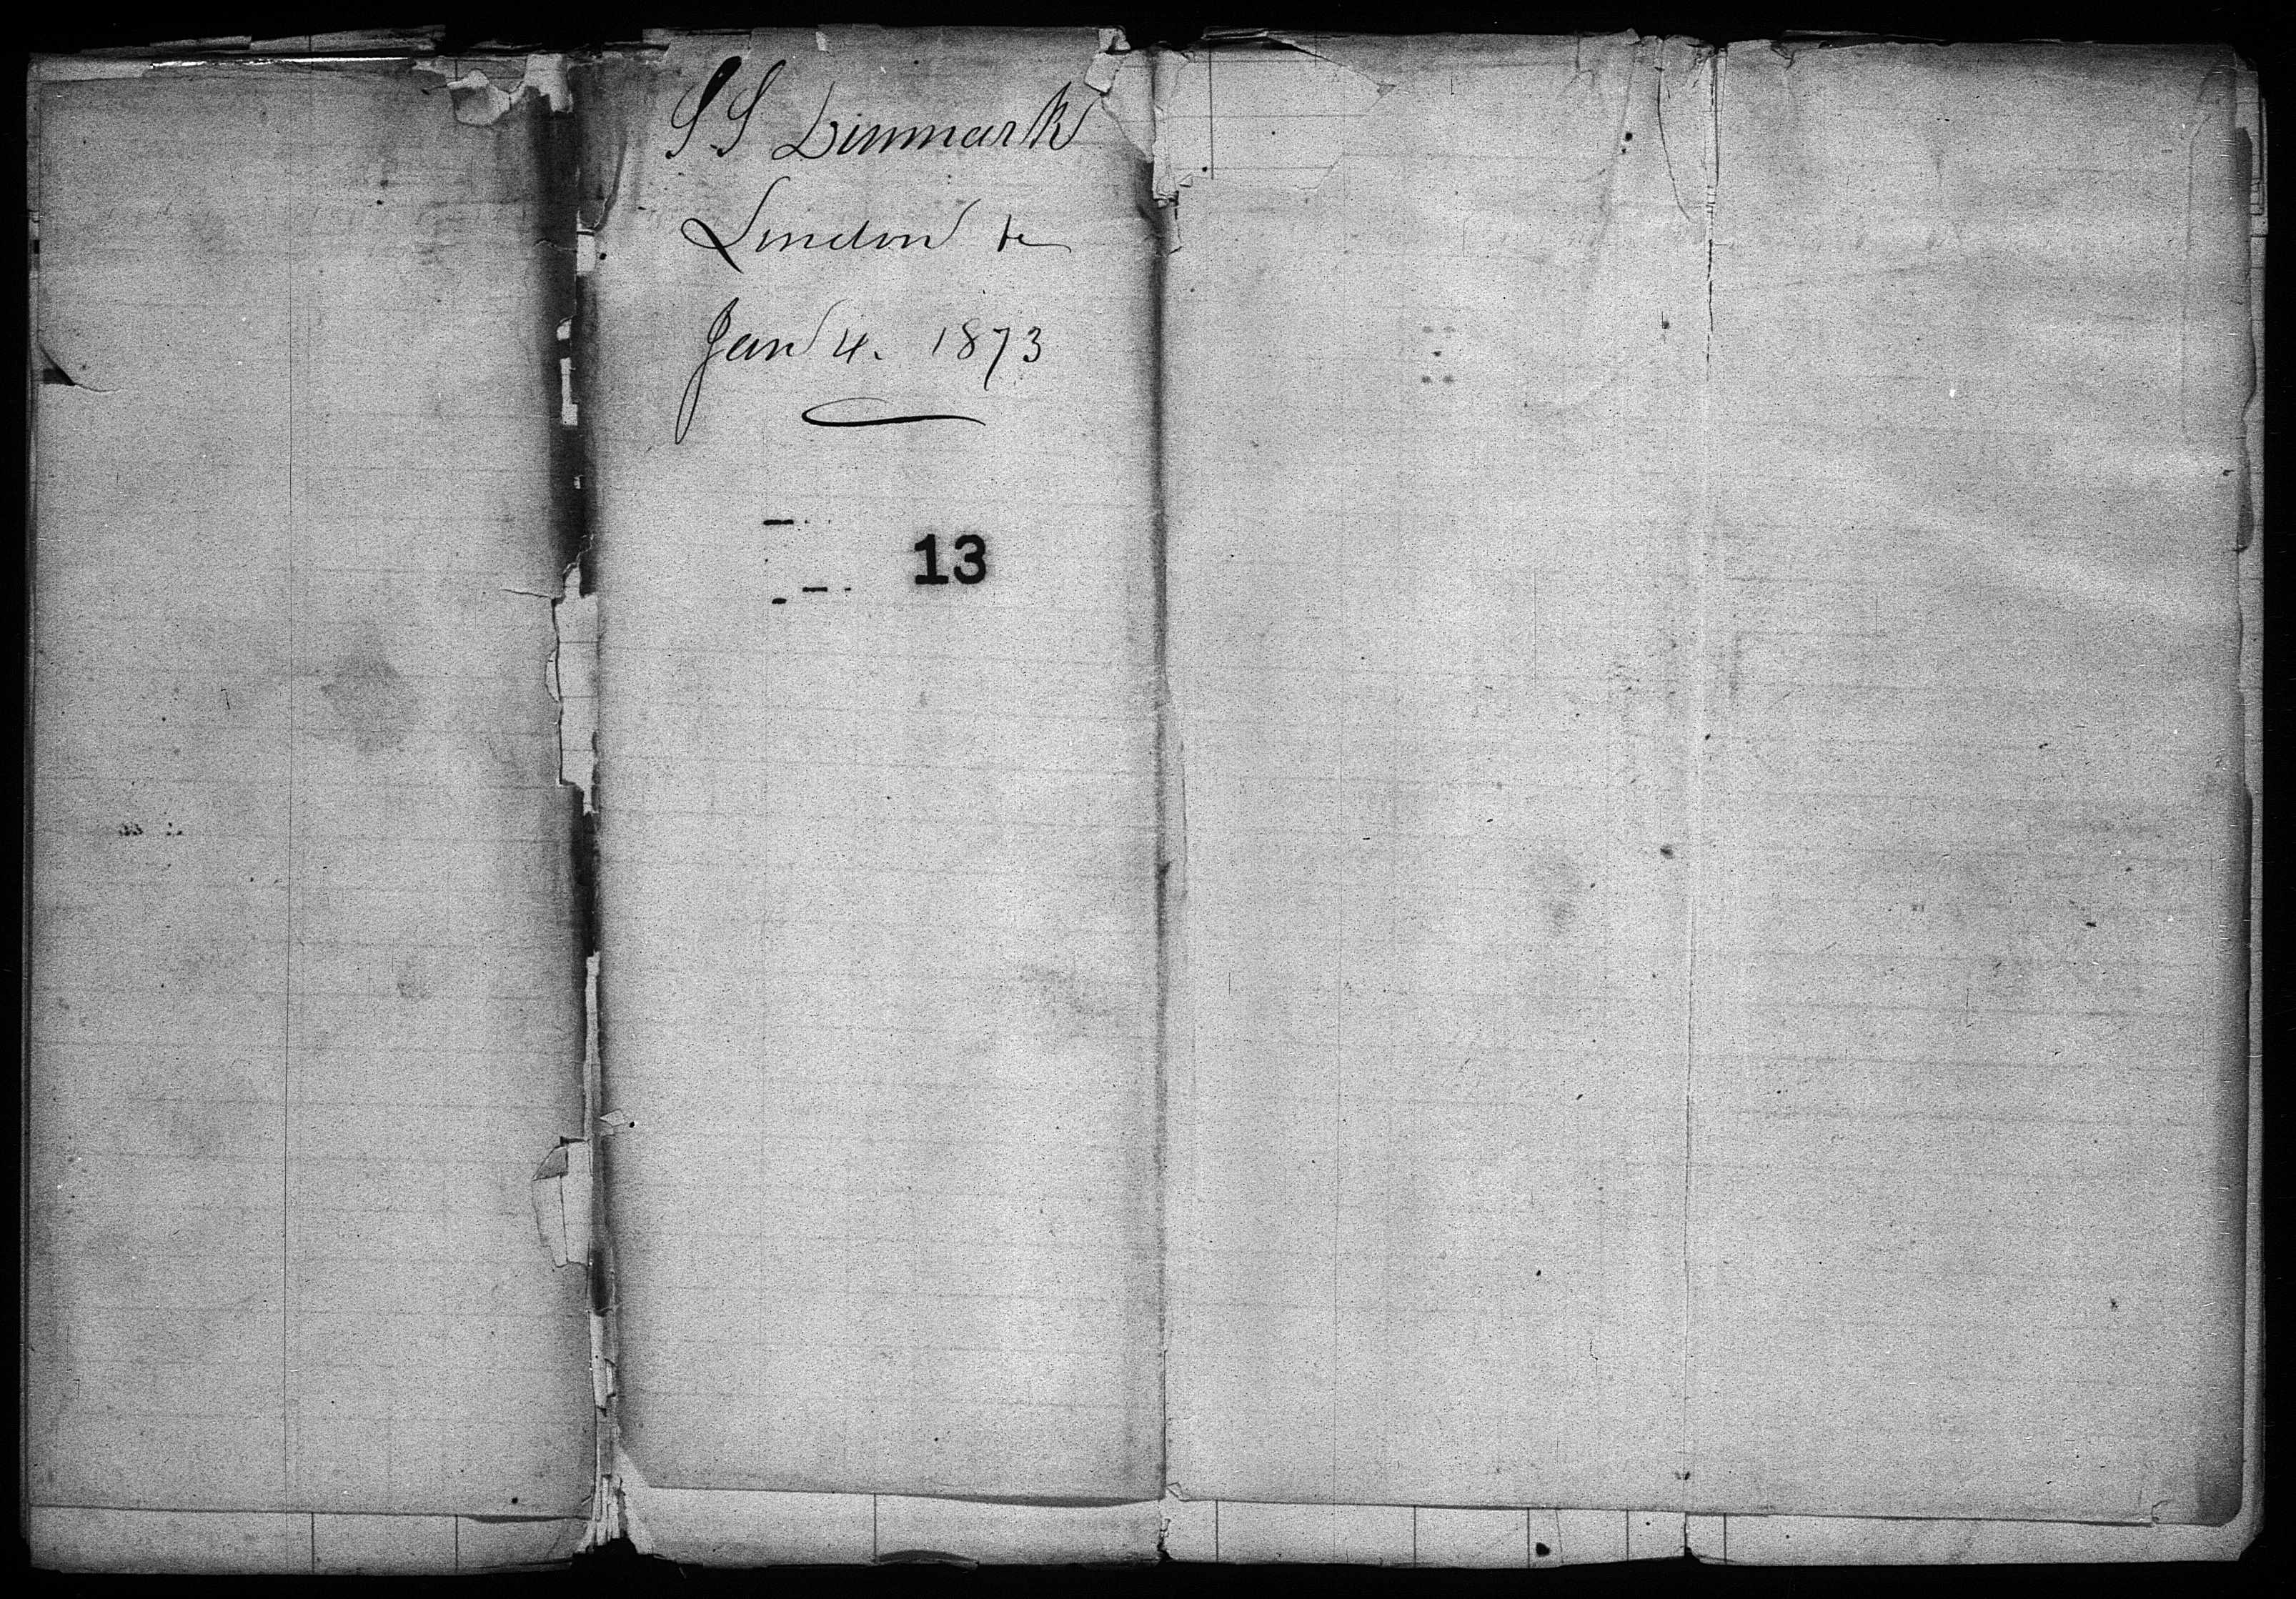 S.S Denmark
London &c
Jan 4. 1873
13